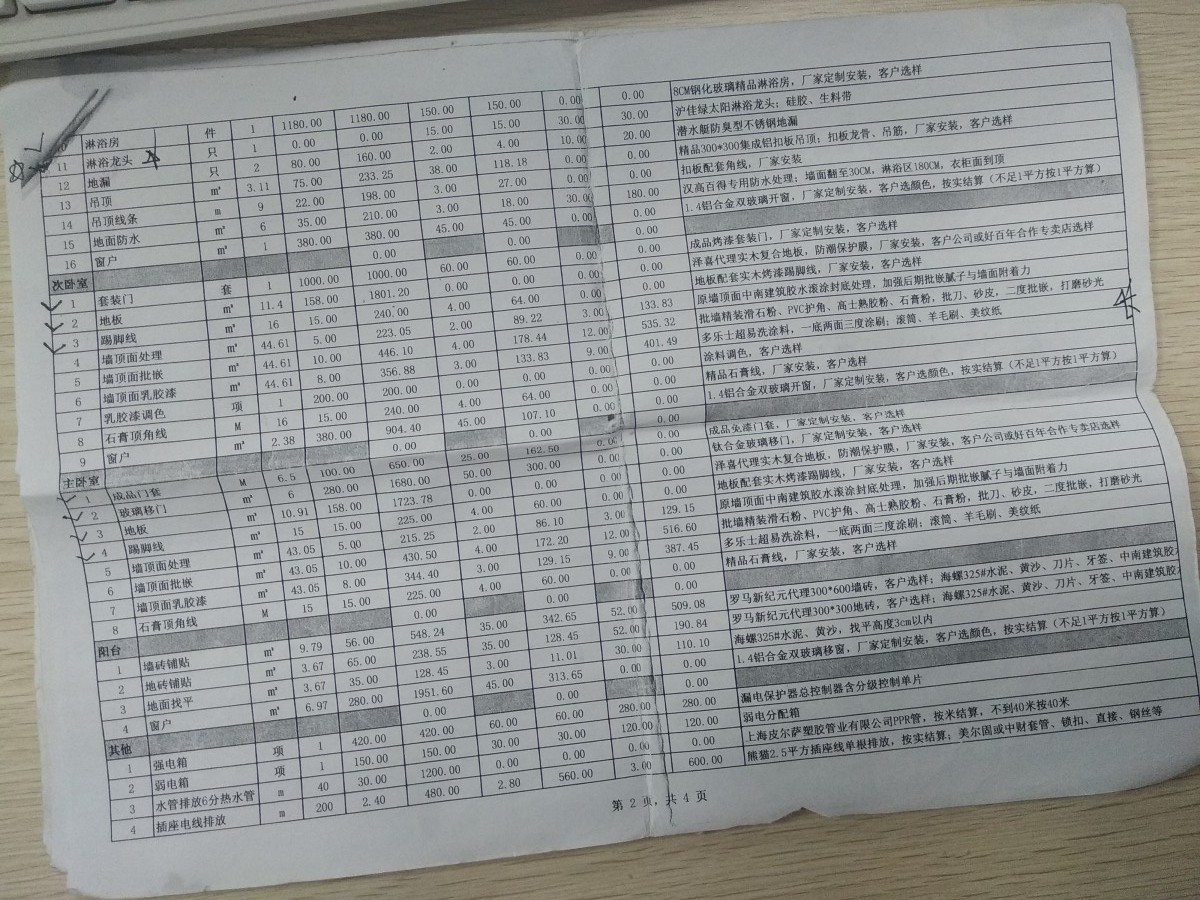 10 淋浴房 件 1 1180.00 1180.00 150.00 150.00 0.00 0.00 8CM钢化玻璃精品淋浴房，厂家定制安装，客户选样
11 淋浴龙头 只 1 0.00 0.00 15.00 15.00 30.00 30.00 沪佳绿太阳淋浴龙头；硅胶、生料带
12 地漏 只 2 80.00 160.00 2.00 4.00 10.00 20.00 潜水艇防臭型不锈钢地漏
13 吊顶 ㎡ 3.11 75.00 233.25 38.00 118.18 0.00 0.00 精品300*300集成铝扣板吊顶；扣板龙骨、吊筋，厂家安装，客户选样
14 吊顶线条 m 9 22.00 198.00 3.00 27.00 0.00 0.00 扣板配套角线，厂家安装
15 地面防水 ㎡ 6 35.00 210.00 3.00 18.00 30.00 180.00 汉高百得专用防水处理；墙面翻至30CM，淋浴区180CM，衣柜面到顶
16 窗户 ㎡ 1 380.00 380.00 45.00 45.00 0.00 0.00 1.4铝合金双玻璃开窗，厂家定制安装，客户选颜色，按实结算（不足1平方按1平方算）
次卧室 0.00 0.00
1 套装门 套 1 1000.00 1000.00 60.00 60.00 0.00 0.00 成品烤漆套装门，厂家定制安装，客户选样
2 地板 ㎡ 11.4 158.00 1801.20 0.00 0.00 0.00 0.00 洋喜代理实木复合地板，防潮保护膜，厂家安装，客户公司或好百年合作专卖店选样
3 踢脚线 ㎡ 16 15.00 240.00 4.00 64.00 0.00 0.00 地板配套实木烤漆踢脚线，厂家安装，客户选样
4 墙顶面处理 ㎡ 44.61 5.00 223.05 2.00 89.22 3.00 133.83 原墙顶面中南建筑胶水滚涂封底处理，加强后期批嵌腻子与墙面附着力
5 墙顶面批嵌 ㎡ 44.61 10.00 446.10 4.00 178.44 12.00 535.32 批墙精装滑石粉、PVC护角、高士熟胶粉、石膏粉，批刀、砂皮，二度批嵌，打磨砂光
6 墙顶面乳胶漆 ㎡ 44.61 8.00 356.88 3.00 133.83 9.00 401.49 多乐士超易洗涂料，一底两面三度涂刷；滚筒、羊毛刷、美纹纸
7 乳胶漆调色 项 1 200.00 200.00 0.00 0.00 0.00 0.00 涂料调色，客户选样
8 石膏顶角线 M 16 15.00 240.00 4.00 64.00 0.00 0.00 精品石膏线，厂家安装，客户选样
9 窗户 ㎡ 2.38 380.00 904.40 45.00 107.10 0.00 0.00 1.4铝合金双玻璃开窗，厂家定制安装，客户选颜色，按实结算（不足1平方按1平方算）
主卧室 0.00 0.00
1 成品门套 M 6.5 100.00 650.00 25.00 162.50 0.00 0.00 成品免漆门套，厂家定制安装，客户选样
2 玻璃移门 ㎡ 6 280.00 1680.00 50.00 300.00 0.00 0.00 钛合金玻璃移门，厂家定制安装，客户选样
3 地板 ㎡ 10.91 158.00 1723.78 0.00 0.00 0.00 0.00 洋喜代理实木复合地板，防潮保护膜，厂家安装，客户公司或好百年合作专卖店选样
4 踢脚线 ㎡ 15 15.00 225.00 4.00 60.00 0.00 0.00 地板配套实木烤漆踢脚线，厂家安装，客户选样
5 墙顶面处理 ㎡ 43.05 5.00 215.25 2.00 86.10 3.00 129.15 原墙顶面中南建筑胶水滚涂封底处理，加强后期批嵌腻子与墙面附着力
6 墙顶面批嵌 ㎡ 43.05 10.00 430.50 4.00 172.20 12.00 516.60 批墙精装滑石粉、PVC护角、高士熟胶粉、石膏粉，批刀、砂皮，二度批嵌，打磨砂光
7 墙顶面乳胶漆 ㎡ 43.05 8.00 344.40 3.00 129.15 9.00 387.45 多乐士超易洗涂料，一底两面三度涂刷；滚筒、羊毛刷、美纹纸
8 石膏顶角线 M 15 15.00 225.00 4.00 60.00 0.00 0.00 精品石膏线，厂家安装，客户选样
阳台 0.00 0.00
1 墙砖铺贴 ㎡ 9.79 56.00 548.24 35.00 342.65 52.00 509.08 罗马新纪元代理300*600墙砖，客户选样；海螺325#水泥、黄沙、刀片、牙签、中南建筑胶水
2 地砖铺贴 ㎡ 3.67 65.00 238.55 35.00 128.45 52.00 190.84 罗马新纪元代理300*300地砖，客户选样；海螺325#水泥、黄沙、刀片、牙签、中南建筑胶
3 地面找平 ㎡ 3.67 35.00 128.45 3.00 11.01 30.00 110.10 海螺325#水泥、黄沙，找平高度3cm以内
4 窗户 ㎡ 6.97 280.00 1951.60 45.00 313.65 0.00 0.00 1.4铝合金双玻璃移窗，厂家定制安装，客户选颜色，按实结算（不足1平方按1平方算）
其他 0.00 0.00
1 强电箱 项 1 420.00 420.00 60.00 60.00 280.00 280.00 漏电保护器总控制器含分级控制单片
2 弱电箱 项 1 150.00 150.00 30.00 30.00 120.00 120.00 弱电分配箱
3 水管排放6分热水管 m 40 30.00 1200.00 0.00 0.00 0.00 0.00 上海皮尔萨塑胶管业有限公司PPR管，按米结算，不到40米按40米
4 插座电线排放 m 200 2.40 480.00 2.80 560.00 3.00 600.00 熊猫2.5平方插座线单根排放，按实结算；美尔固或中财套管、锁扣、直接、钢丝等
第 2 页，共 4 页